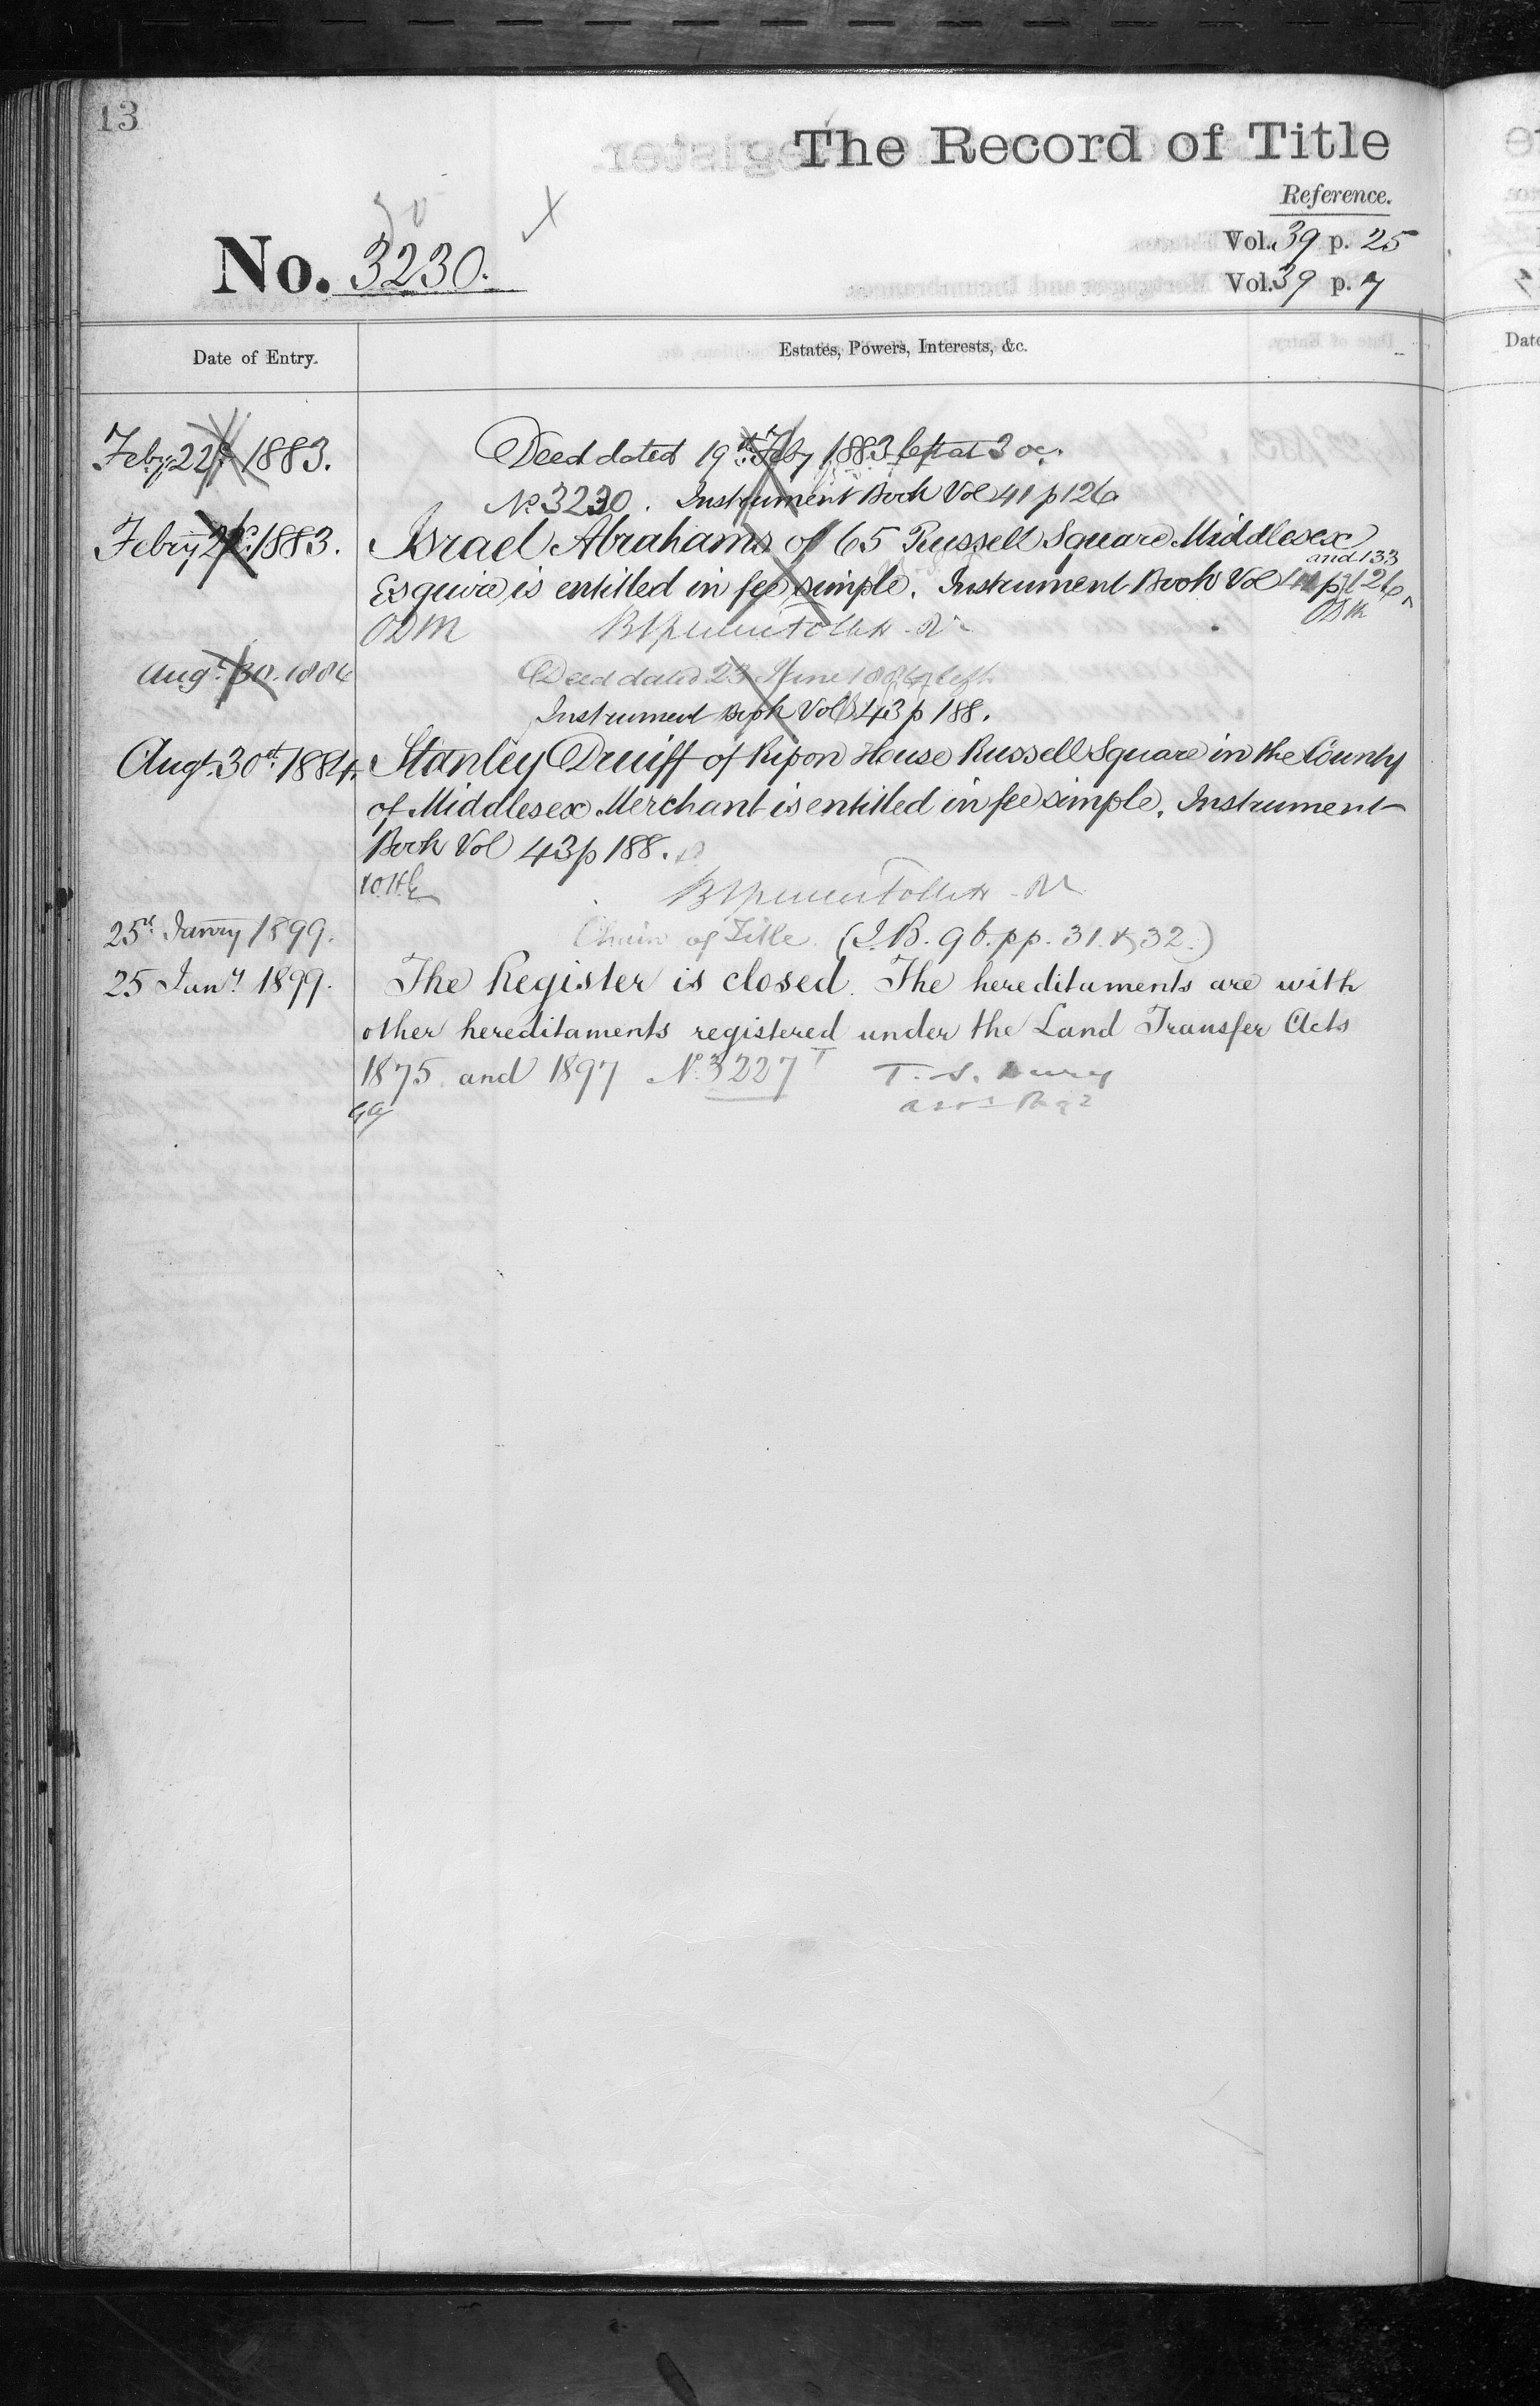 13
The Record of Title
Reference.
Vol. 39 p. 25
No. 3230.
Vol. 39 p. 7
Date of Entry.
Estates, Powers, Interests, &c.
Date
Feby. 22d. 1883.
Deed dated 19th Feby 1883 left at 3 oc.
No 3230. Instrument Book Vol 41 p 126
Febry 1883.
Israel Abrahams of 65 Russell Square Middlesex
and 133
Esquire is entitled in fee simple. Instrument Book Vol 41 p 126
ODM
Augt. 30. 1884
Deed dated 23 June 1884 left
Instrument Book Vol 43 p 188.
Augt. 30th. 1884.
Stanley Druiff of Ripon House Russell Square in the County
of Middlesex Merchant is entitled in fee simple. Instrument
Book Vol 43 p 188.
25th Janry 1899.
Chain of Title. (I.B. 96. pp. 31. & 32.)
25 Jany. 1899.
The Register is closed. The hereditaments are with
other hereditaments registered under the Land Transfer Acts
1875 and 1897 No. 3227